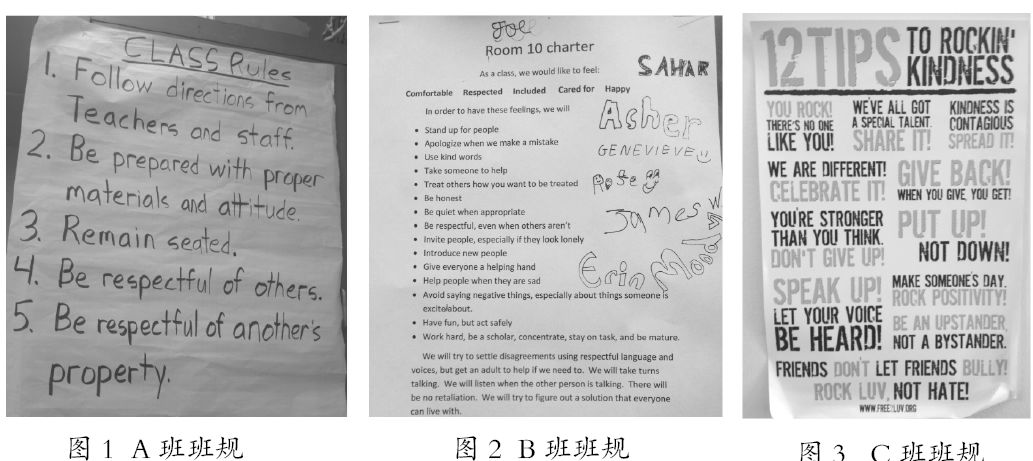 CLASS Rules
1. Follow directions from
Teachers and staff.
2. Be prepared with proper
materials and attitude.
3. Remain seated.
4. Be respectful of others.
5. Be respectful of another's
property.
图 1 A 班班规
Joe
Room 10 charter
SAHAR
As a class, we would like to feel:
Comfortable Respected Included Cared for Happy
In order to have these feelings, we will
Asher
• Stand up for people
• Apologize when we make a mistake
• Use kind words
GENEVIEVE
• Take someone to help
• Treat others how you want to be treated
Rose
• Be honest
• Be quiet when appropriate
James W
• Be respectful, even when others aren't
• Invite people, especially if they look lonely
• Introduce new people
• Give everyone a helping hand
Erin Moody
• Help people when they are sad
• Avoid saying negative things, especially about things someone is
excited about.
• Have fun, but act safely
• Work hard, be a scholar, concentrate, stay on task, and be mature.
We will try to settle disagreements using respectful language and
voices, but get an adult to help if we need to. We will take turns
talking. We will listen when the other person is talking. There will
be no retaliation. We will try to figure out a solution that everyone
can live with.
图 2 B 班班规
12 TIPS TO ROCKIN'
KINDNESS
YOU ROCK!
THERE'S NO ONE
LIKE YOU!
WE'VE ALL GOT
A SPECIAL TALENT.
SHARE IT!
KINDNESS IS
CONTAGIOUS
SPREAD IT!
WE ARE DIFFERENT!
CELEBRATE IT!
GIVE BACK!
WHEN YOU GIVE, YOU GET!
YOU'RE STRONGER
THAN YOU THINK.
DON'T GIVE UP!
PUT UP!
NOT DOWN!
SPEAK UP!
LET YOUR VOICE
BE HEARD!
MAKE SOMEONE'S DAY.
ROCK POSITIVITY!
BE AN UPSTANDER,
NOT A BYSTANDER.
FRIENDS DON'T LET FRIENDS BULLY!
ROCK LUV, NOT HATE!
WWW.FREE2LUV.ORG
图 3 C 班班规